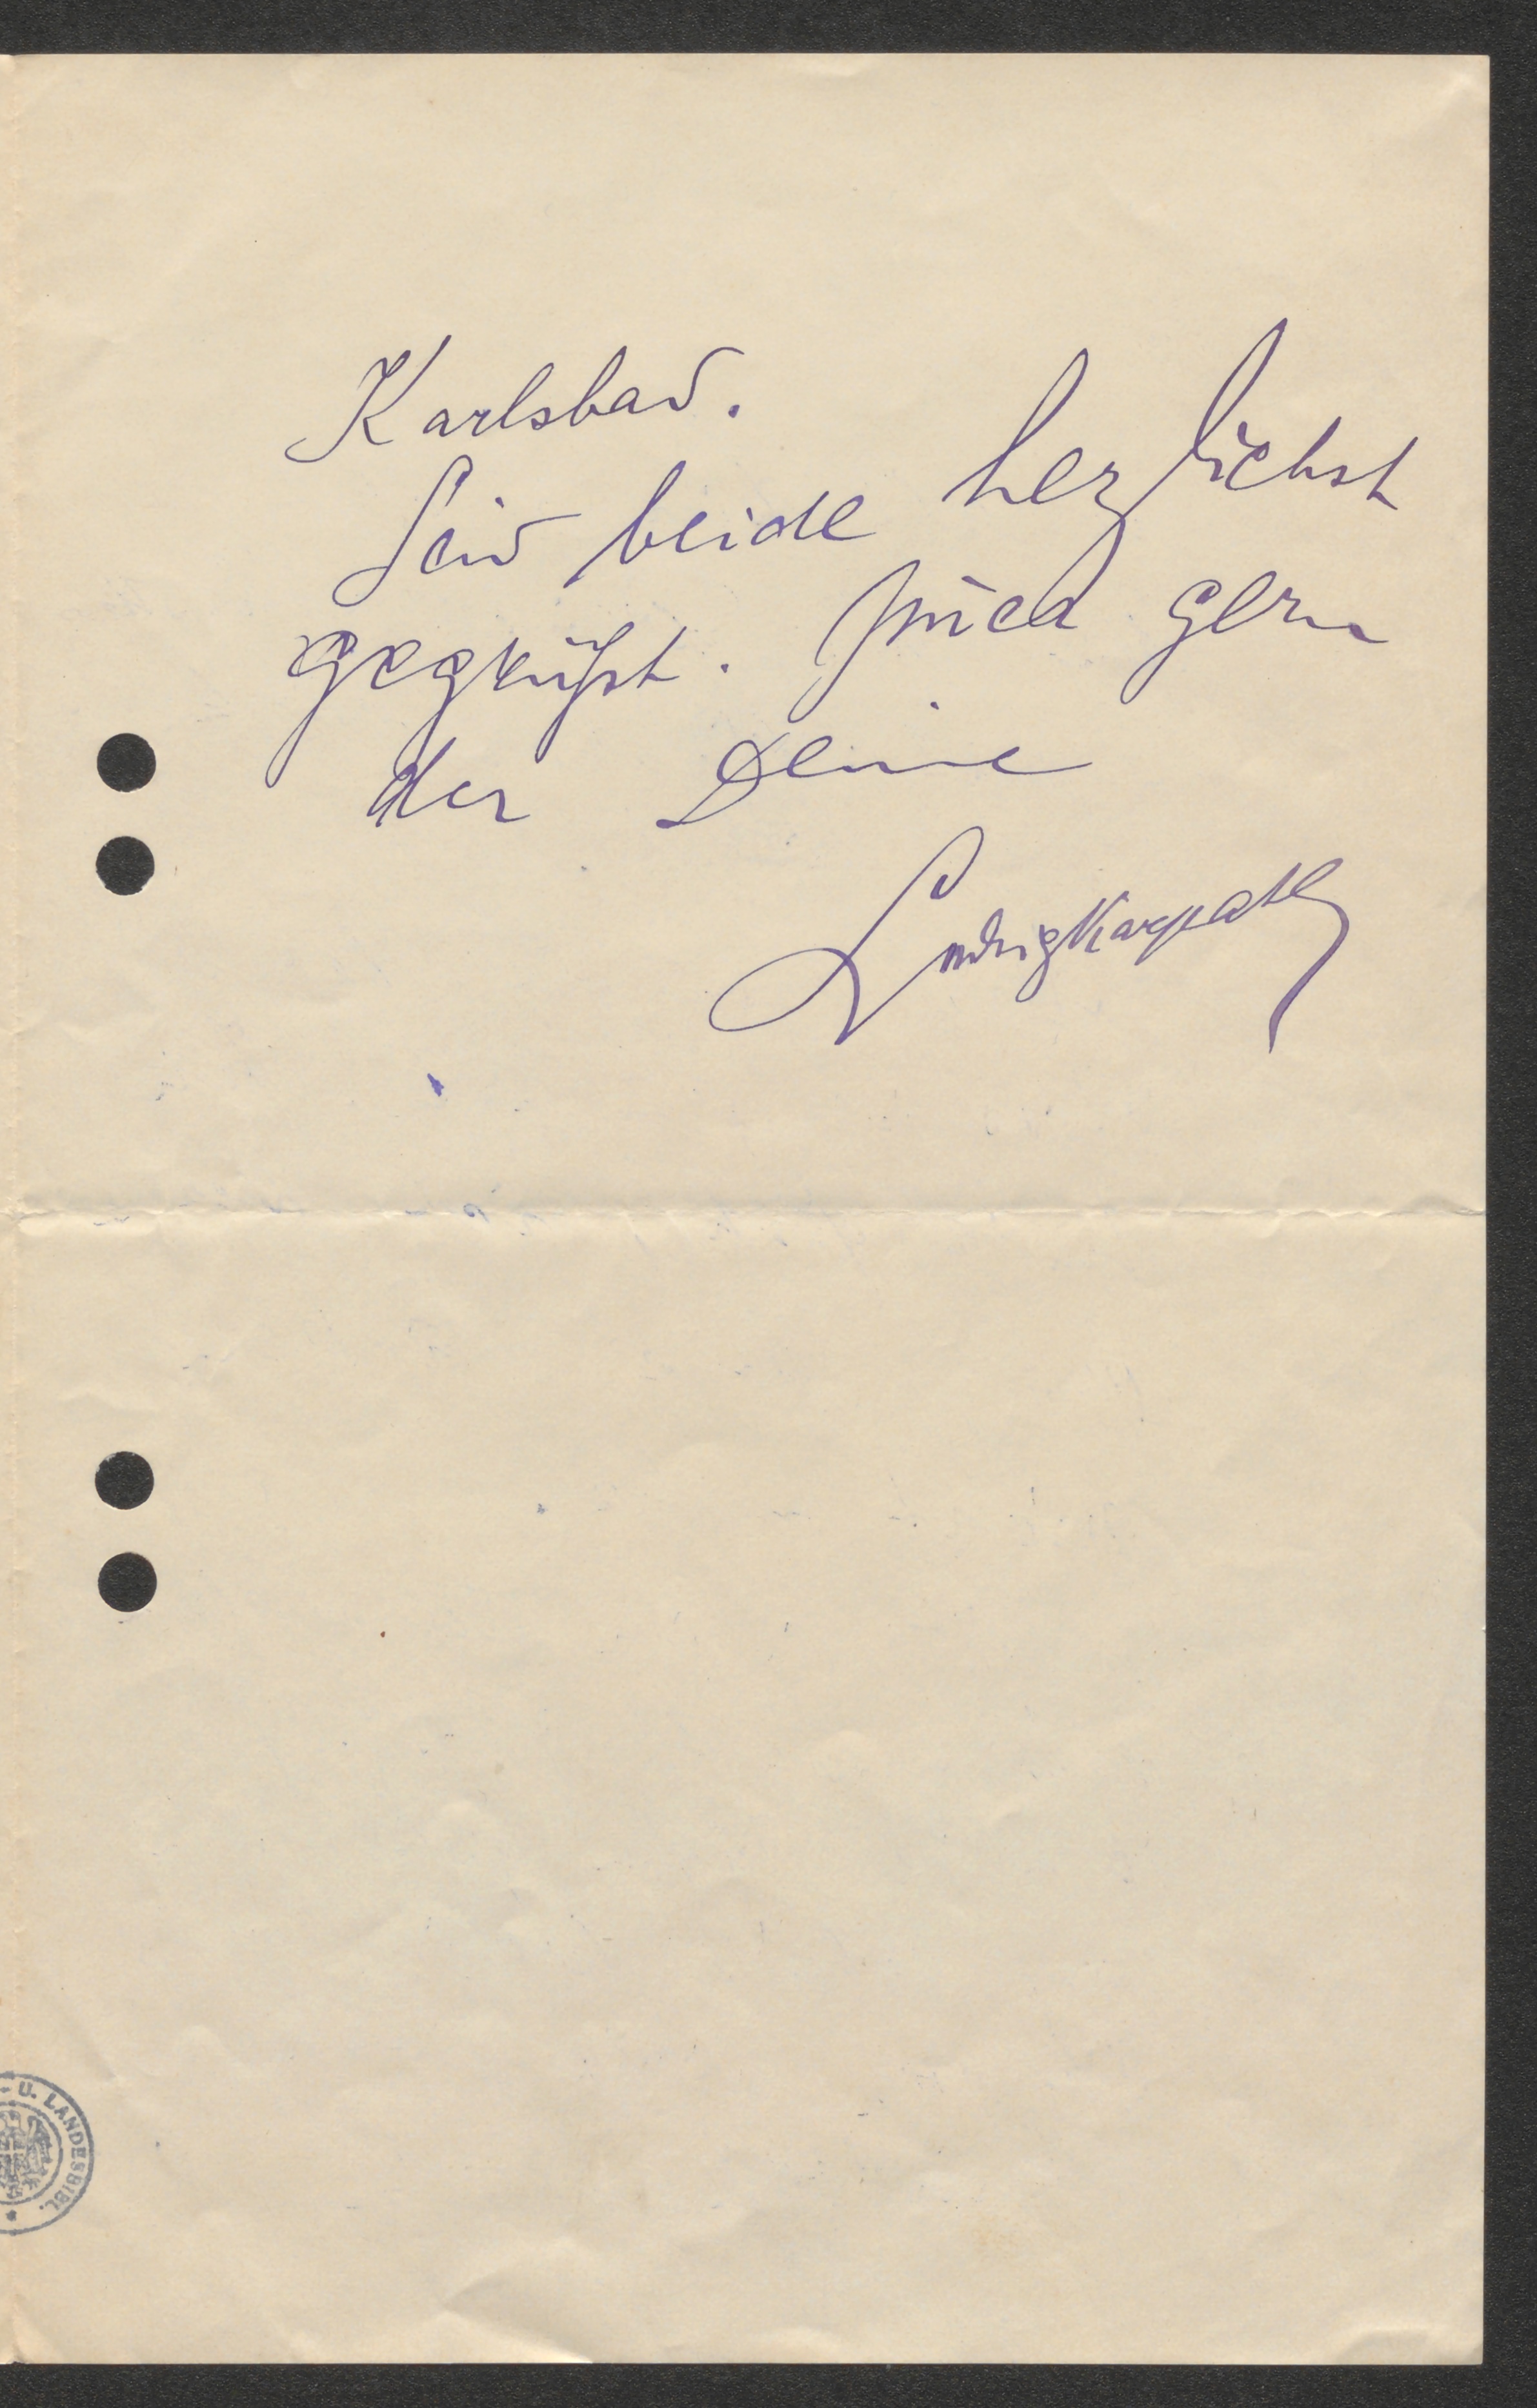 Karlsbad.
Seid beide herzlichst
gegrüßt. gern
der Deine
Ludwig Karpath
U. LANDESBIBL.